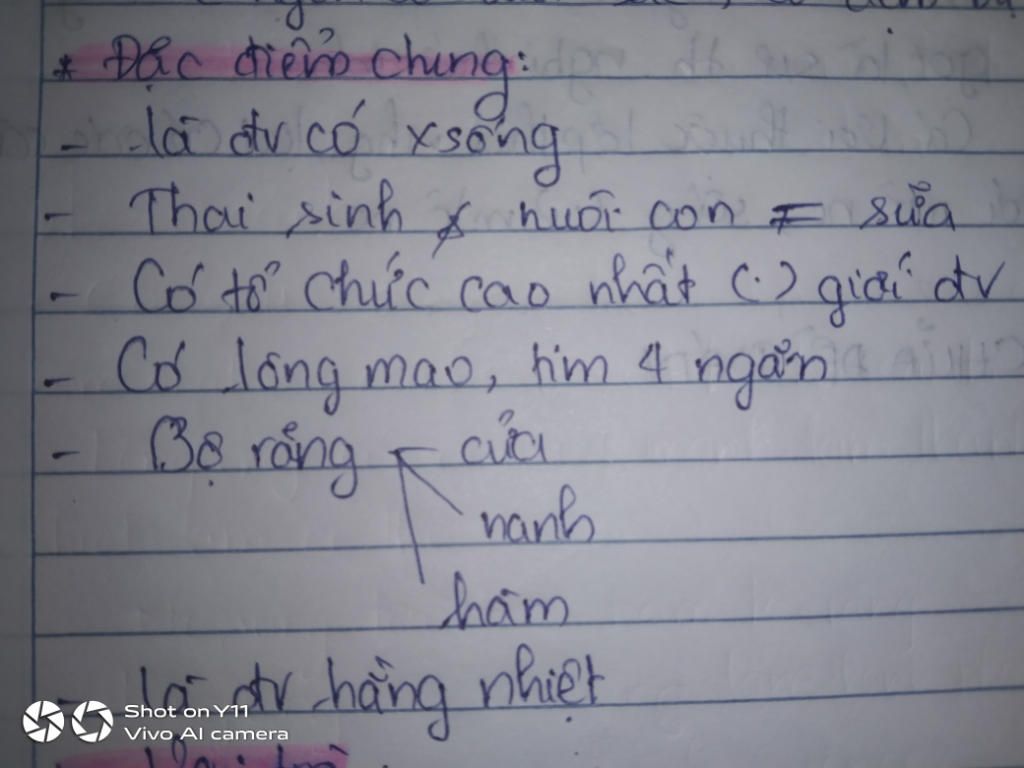 * Đặc điểm chung:
- là đv có xsống
- Thai sinh & nuôi con = sữa
- Có tổ chức cao nhất (.) giới đv
- Có lông mao, tim 4 ngăn
- Bộ răng cửa
nanh
hàm
- là đv hằng nhiệt
Shot on Y11
Vivo AI camera